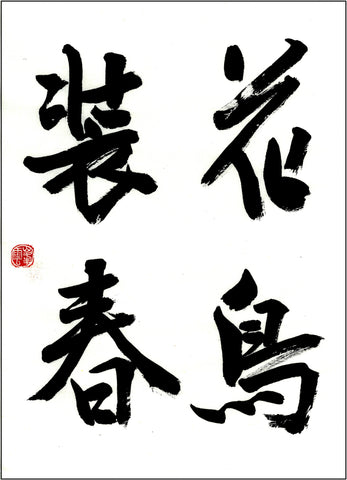 花鳥
装春